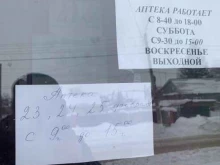 АПТЕКА РАБОТАЕТ
С 8-40 до 18-00
СУББОТА
С9-30 до 15-00
ВОСКРЕСЕНЬЕ
ВЫХОДНОЙ
23, 24, 25
с 9